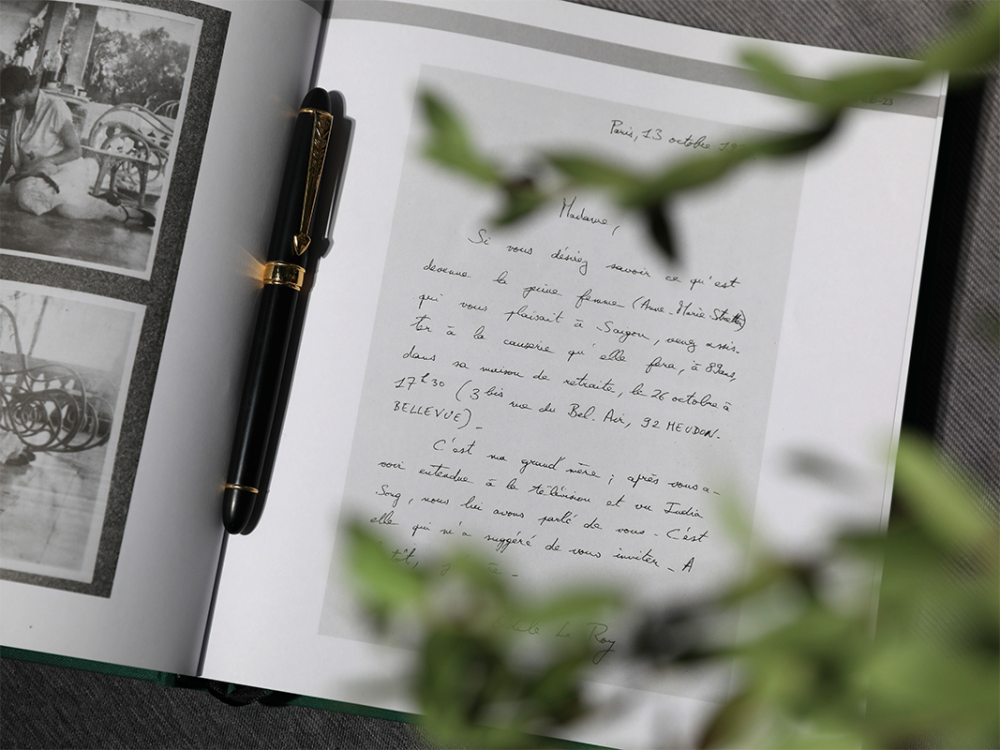 23
Paris, 13 octobre 19
Madame,
Si vous désirez savoir ce qu'est
devenue la jeune femme (Anne-Marie Stretter)
qui vous plaisait à Saïgon, venez assis-
ter à la causerie qu'elle fera, à 89 ans,
dans sa maison de retraite, le 26 octobre à
17h30 (3 bis rue du Bel. Air, 92 MEUDON.
BELLEVUE).
C'est ma grand'mère ; après vous a-
voir entendue à la télévision et vu India
Song, nous lui avons parlé de vous. C'est
elle qui m'a suggéré de vous inviter. A
Le Roy